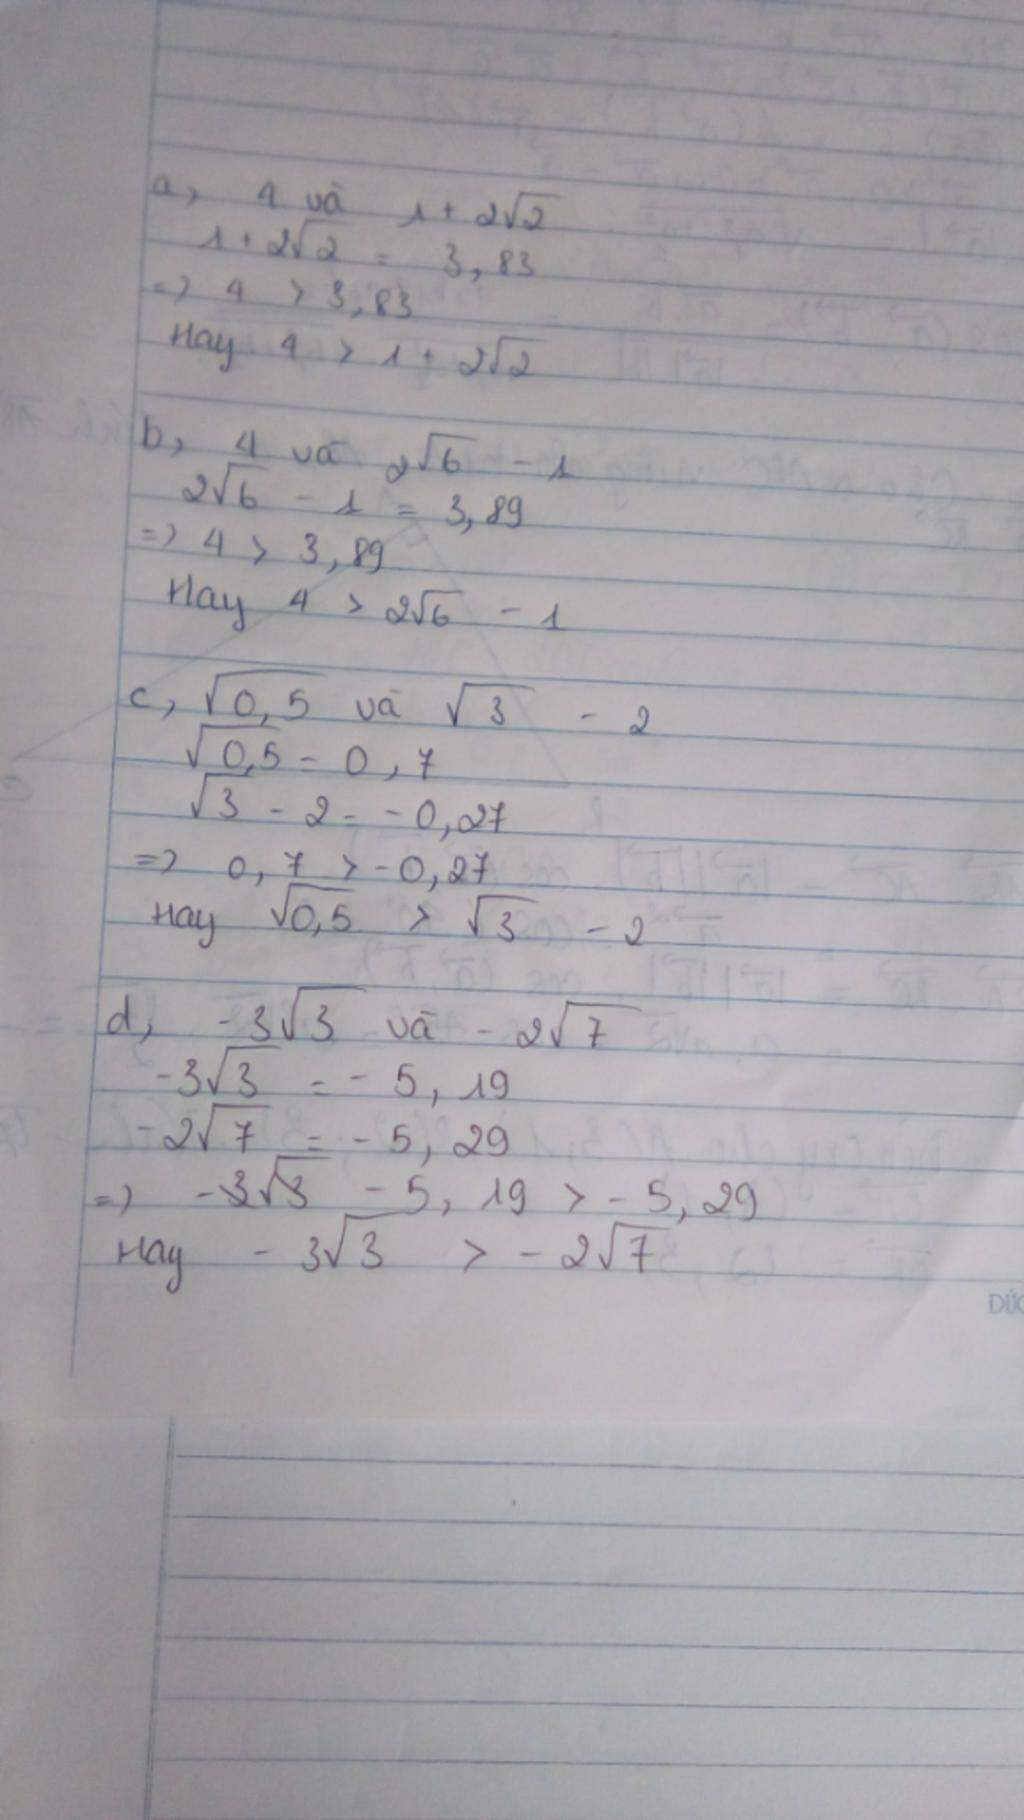 a, 4 và 1 + 2√2
1 + 2√2 = 3,83
=> 4 > 3,83
Hay 4 > 1 + 2√2
b, 4 và 2√6 - 1
2√6 - 1 = 3,89
=> 4 > 3,89
Hay 4 > 2√6 - 1
c, √0,5 và √3 - 2
√0,5 = 0,7
√3 - 2 = -0,27
=> 0,7 > -0,27
Hay √0,5 > √3 - 2
d, -3√3 và -2√7
-3√3 = -5,19
-2√7 = -5,29
=> -3√3 -5,19 > -5,29
Hay -3√3 > -2√7
ĐỨC